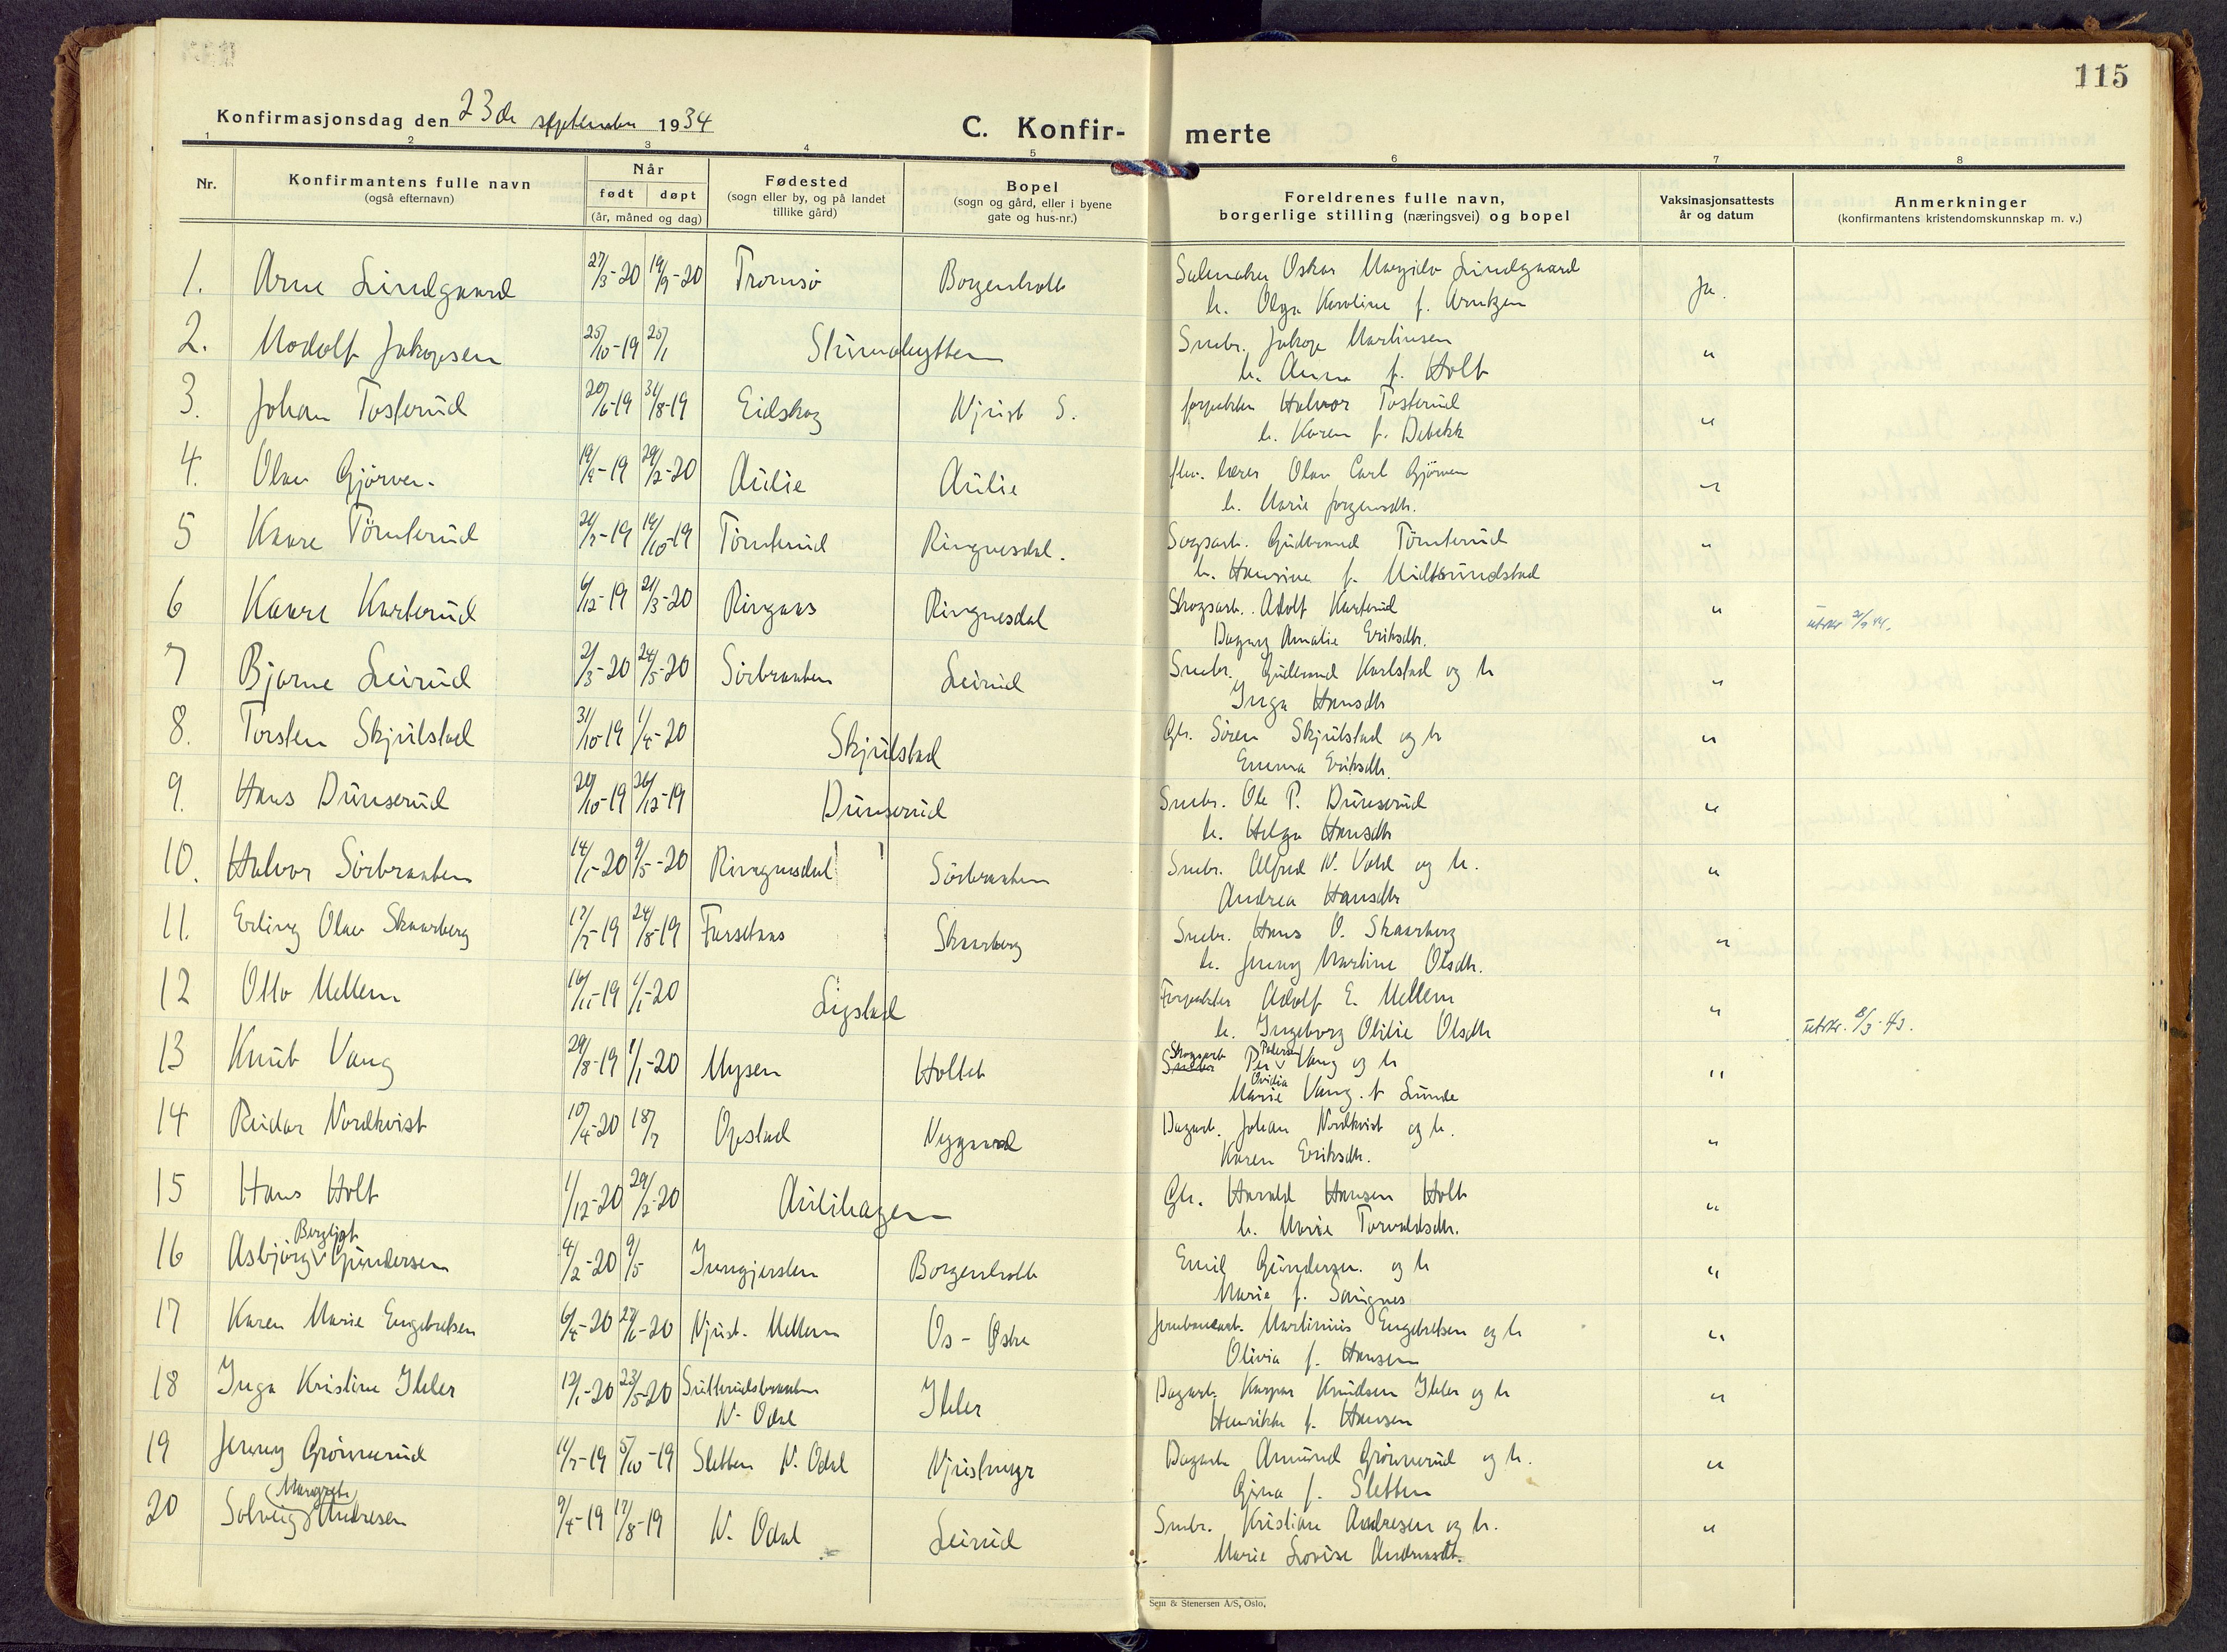 115
Konfirmasjonsdag den 23de september 1934
C. Konfir- merte
1 2 3 4 5 6 7 8
Nr. Konfirmantens fulle navn (også efternavn) Når født døpt (år, måned og dag) Fødested (sogn eller by, og på landet tillike gård) Bopel (sogn og gård, eller i byene gate og hus-nr.) Foreldrenes fulle navn, borgerlige stilling (næringsvei) og bopel Vaksinasjonsattests år og datum Anmerkninger (konfirmantens kristendomskunnskap m. v.)
1. Arne Lindgaard 27/3-20 19/9-20 Tromsø Borgenholt Salmaker Oskar Lindgaard Ja.
h. Olga Karoline f. Arntzen
2. Modolf Jakopsen 25/10-19 25/1 Smbr. Jakop Martinsen "
h. Anna f. Holt
3. Johan Tosterud 20/6-19 31/8-19 Eidskog Njust S. forpakter Halvor Tosterud "
h. Karen f.
4. Olav Gjørven. 29/2-20 Aulie Aulie lærer Olav Carl Gjørven "
h. Marie Jørgensdtr.
5 Kaare Tørnterud 19/10-19 Tørnterud Ringnesdal. Gudbrand Tørnterud "
h. Hansine f. Midtsundstad
6 Kaare Karterud 6/12-19 21/3-20 Ringnes Ringnesdal Skogsarb. Adolf Karterud "
Dagny Amalie Eriksdtr.
7 Bjarne Leirud 2/3-20 24/5-20 Sørbraaten Leirud Smbr. Gudbrand Karlstad og h "
Inga Hansdtr
8. Torsten Skjulstad 31/10-19 1/4-20 Skjulstad Gbr. Søren Skjulstad og h "
Emma Eriksdtr.
9. Hans Dunserud 20/10-19 26/12-19 Dunserud Smbr. Ole P. Dunserud "
h. Helga Hansdtr
10. Halvor Sørbraaten 14/1-20 9/5-20 Ringnesdal Sørbraaten Smbr. Alfred N. Vold og h. "
Andrea Hansdtr
11. Erling Olav Skaarberg 17/7-19 24/8-19 Furset​aas Skaarberg Smbr. Hans O. Skaarberg "
h. Jenny Martine Olsdtr.
12 Otto Mellem 16/11-19 1/1-20 Ligstad Forpakter Adolf E. Mellem "
h. Ingeborg Otilie Olsdtr utskr. 8/3-43.
13 Knut Vang 29/8-19 1/1-20 Mysen Holtet Skogsarb Per Pedersen Vang og h "
Marie Ovidia Vang. f Lunde
14 Reidar Nordkvist 10/4-20 18/7 Opstad Nygaard Dagarb. Johan Nordkvist og h. "
Karen Eriksdtr.
15 Hans Holt 1/12-20 29/2-20 Aulihagen Gbr. Harald Hansen Holt "
h. Marie Torvaldsdtr.
16 Asbjørg Bergljot Gundersen 4/2-20 9/5 Borgenholt Emil Gundersen. og h "
Marie f. Saugnes
17 Karen Marie Engebretsen 6/4-20 27/6-20 Njust. Mellem Os - Østre Jernbanearb. Martinius Engebretsen og h "
Olivia f. Hansen
18 Inga Kristine Ihler 12/1-20 23/5-20 N. Odal Ihler Dagarb. Kaspar Knudsen Ihler og h "
Henrikke f. Hansen
19 Jenny Grønnerud 5/10-19 Sletten N. Odal Njustmyr Dagarb Amund Grønnerud og h. "
Gina f. Sletten
20 Solveig (Margrete) Andresen 9/4-19 17/8-19 N. Odal Leirud Smbr. Kristian Andresen og h. "
Marie Lovise Andreasdt.
Sem & Stenersen A/S, Oslo.